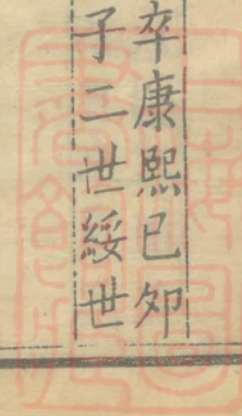 卒康熙已夘
子二世綏世